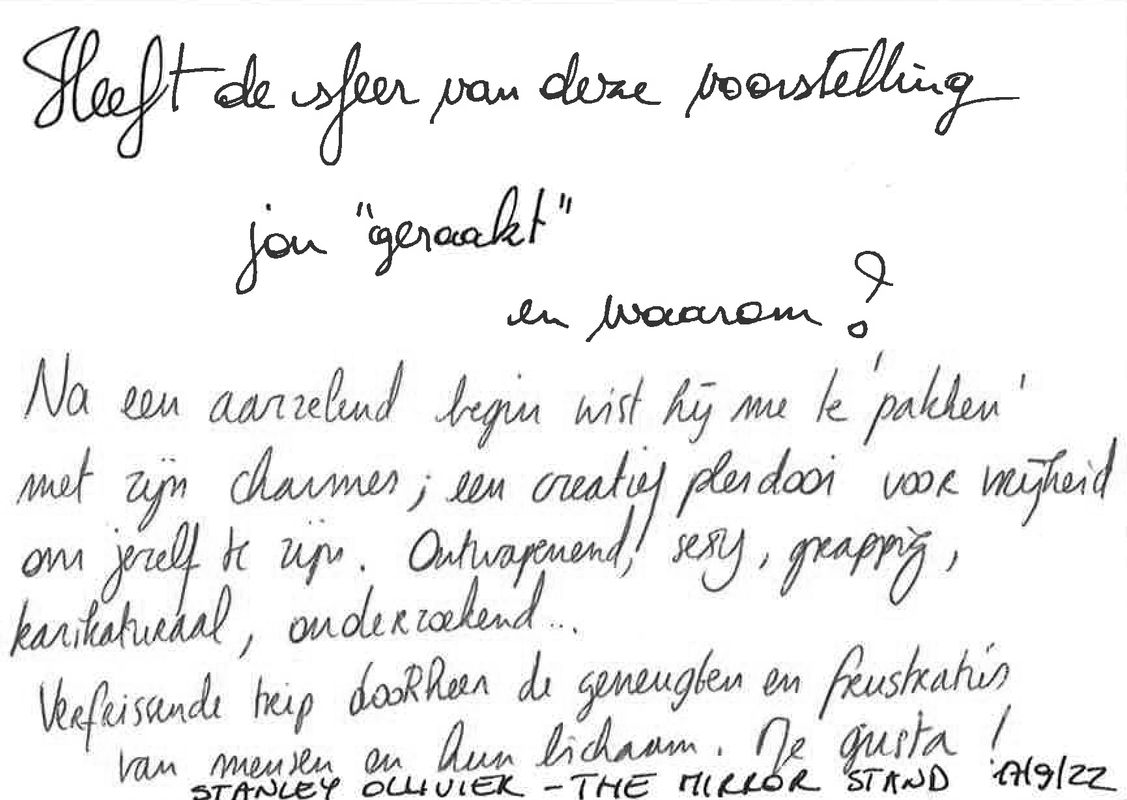 Heeft de sfeer van deze voorstelling
jou "geraakt"
en waarom?
Na een aarzelend begin wist hij me te 'pakken'
met zijn charmes; een creatief pleidooi voor vrijheid
om jezelf te zijn. Ontwapenend, sexy, grappig,
karikaturaal, onderzoekend...
Verfrissende trip doorheen de geneugten en frustraties
van mensen en hun lichaam. Me gusta !
STANLEY OLLIVIER - THE MIRROR STAND 17/9/22